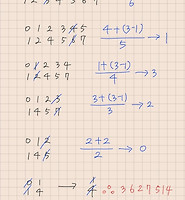 0 1 2 3 4 5
1 2 4 5 6 7
(4+(3-1))/5 → 1
0 1 2 3 4
1 2 4 5 7
(1+(3-1))/4 → 3
0 1 2 3
1 4 5 7
(3+(3-1))/3 → 2
0 1 2
1 4 5
(2+2)/2 → 0
0 1
1 4 → 4 ∴ 3 6 2 7 5 1 4